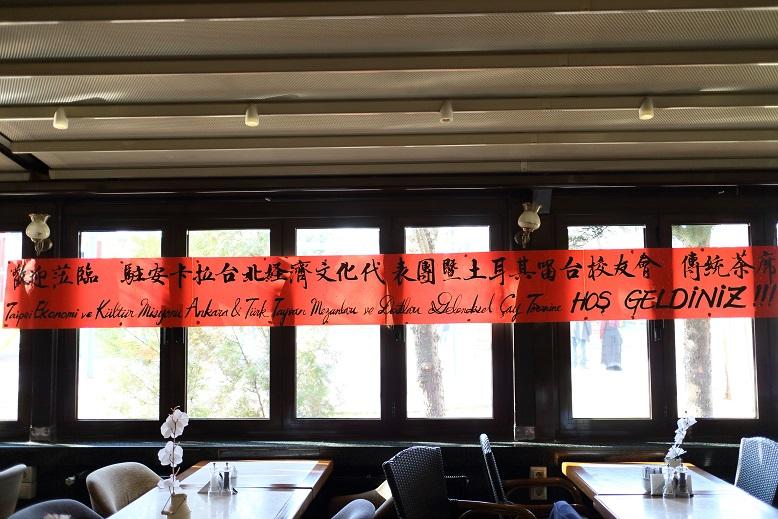 歡迎蒞臨 駐安卡拉台北經濟文化代表團暨土耳其留台校友會 傳統茶席
Taipei Ekonomi ve Kültür Misyonu Ankara & Türk Tayvan Mezunları ve Dostları Geleneksel Çay Törenine HOŞ GELDİNİZ !!!